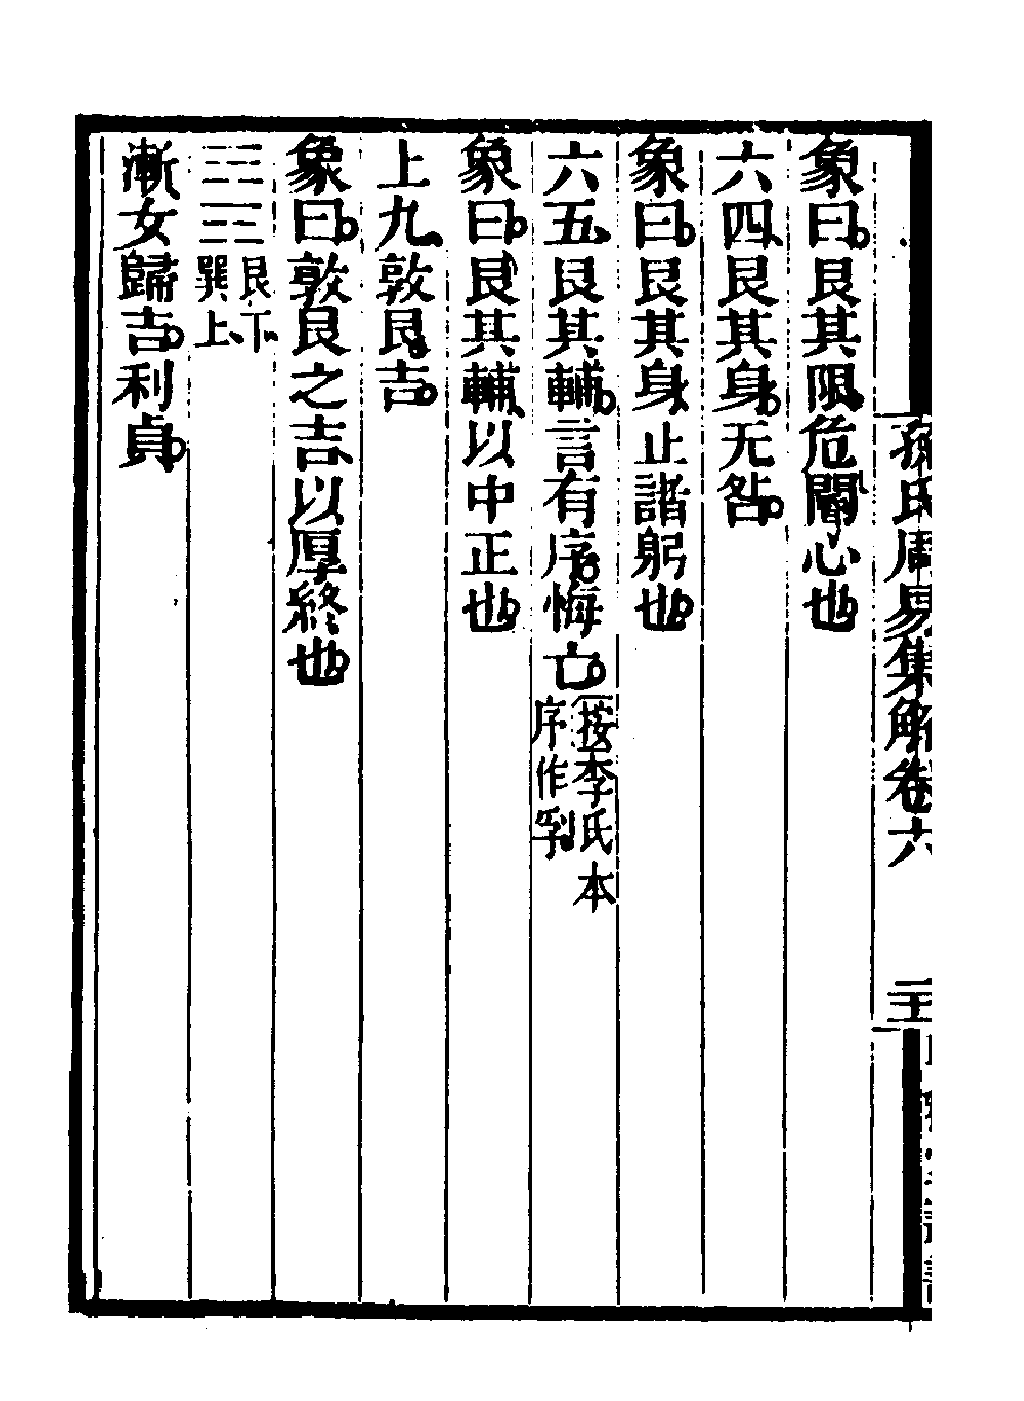 孫氏周易集解卷六
象曰艮其限危閽心也
六四艮其身无咎
象曰艮其身止諸躬也
六五艮其輔言有序悔亡按李氏本序作孚
象曰艮其輔以中正也
上九敦艮吉
象曰敦艮之吉以厚終也
䷴艮下巽上
漸女歸吉利貞